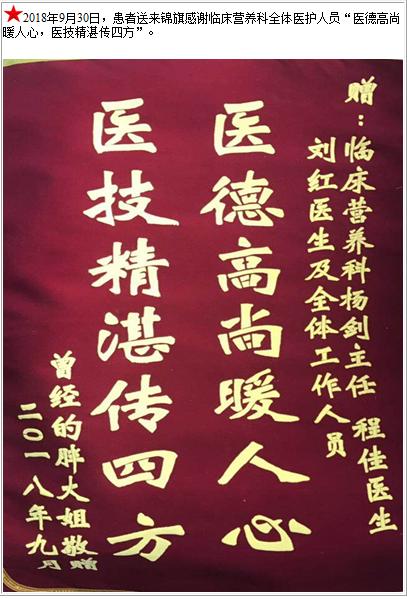 2018年9月30日，患者送来锦旗感谢临床营养科全体医护人员“医德高尚
暖人心，医技精湛传四方”。
赠：临床营养科杨剑主任 程佳医生
刘红医生及全体工作人员
医德高尚暖人心
医技精湛传四方
曾经的胖大姐敬赠
二〇一八年九月